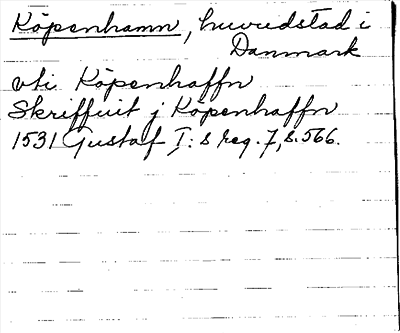 Köpenhamn, huvudstad i
Danmark
vti Köpenhaffn
Skriffuit j Köpenhaffn
1531 Gustaf I:s reg. 7, s. 566.